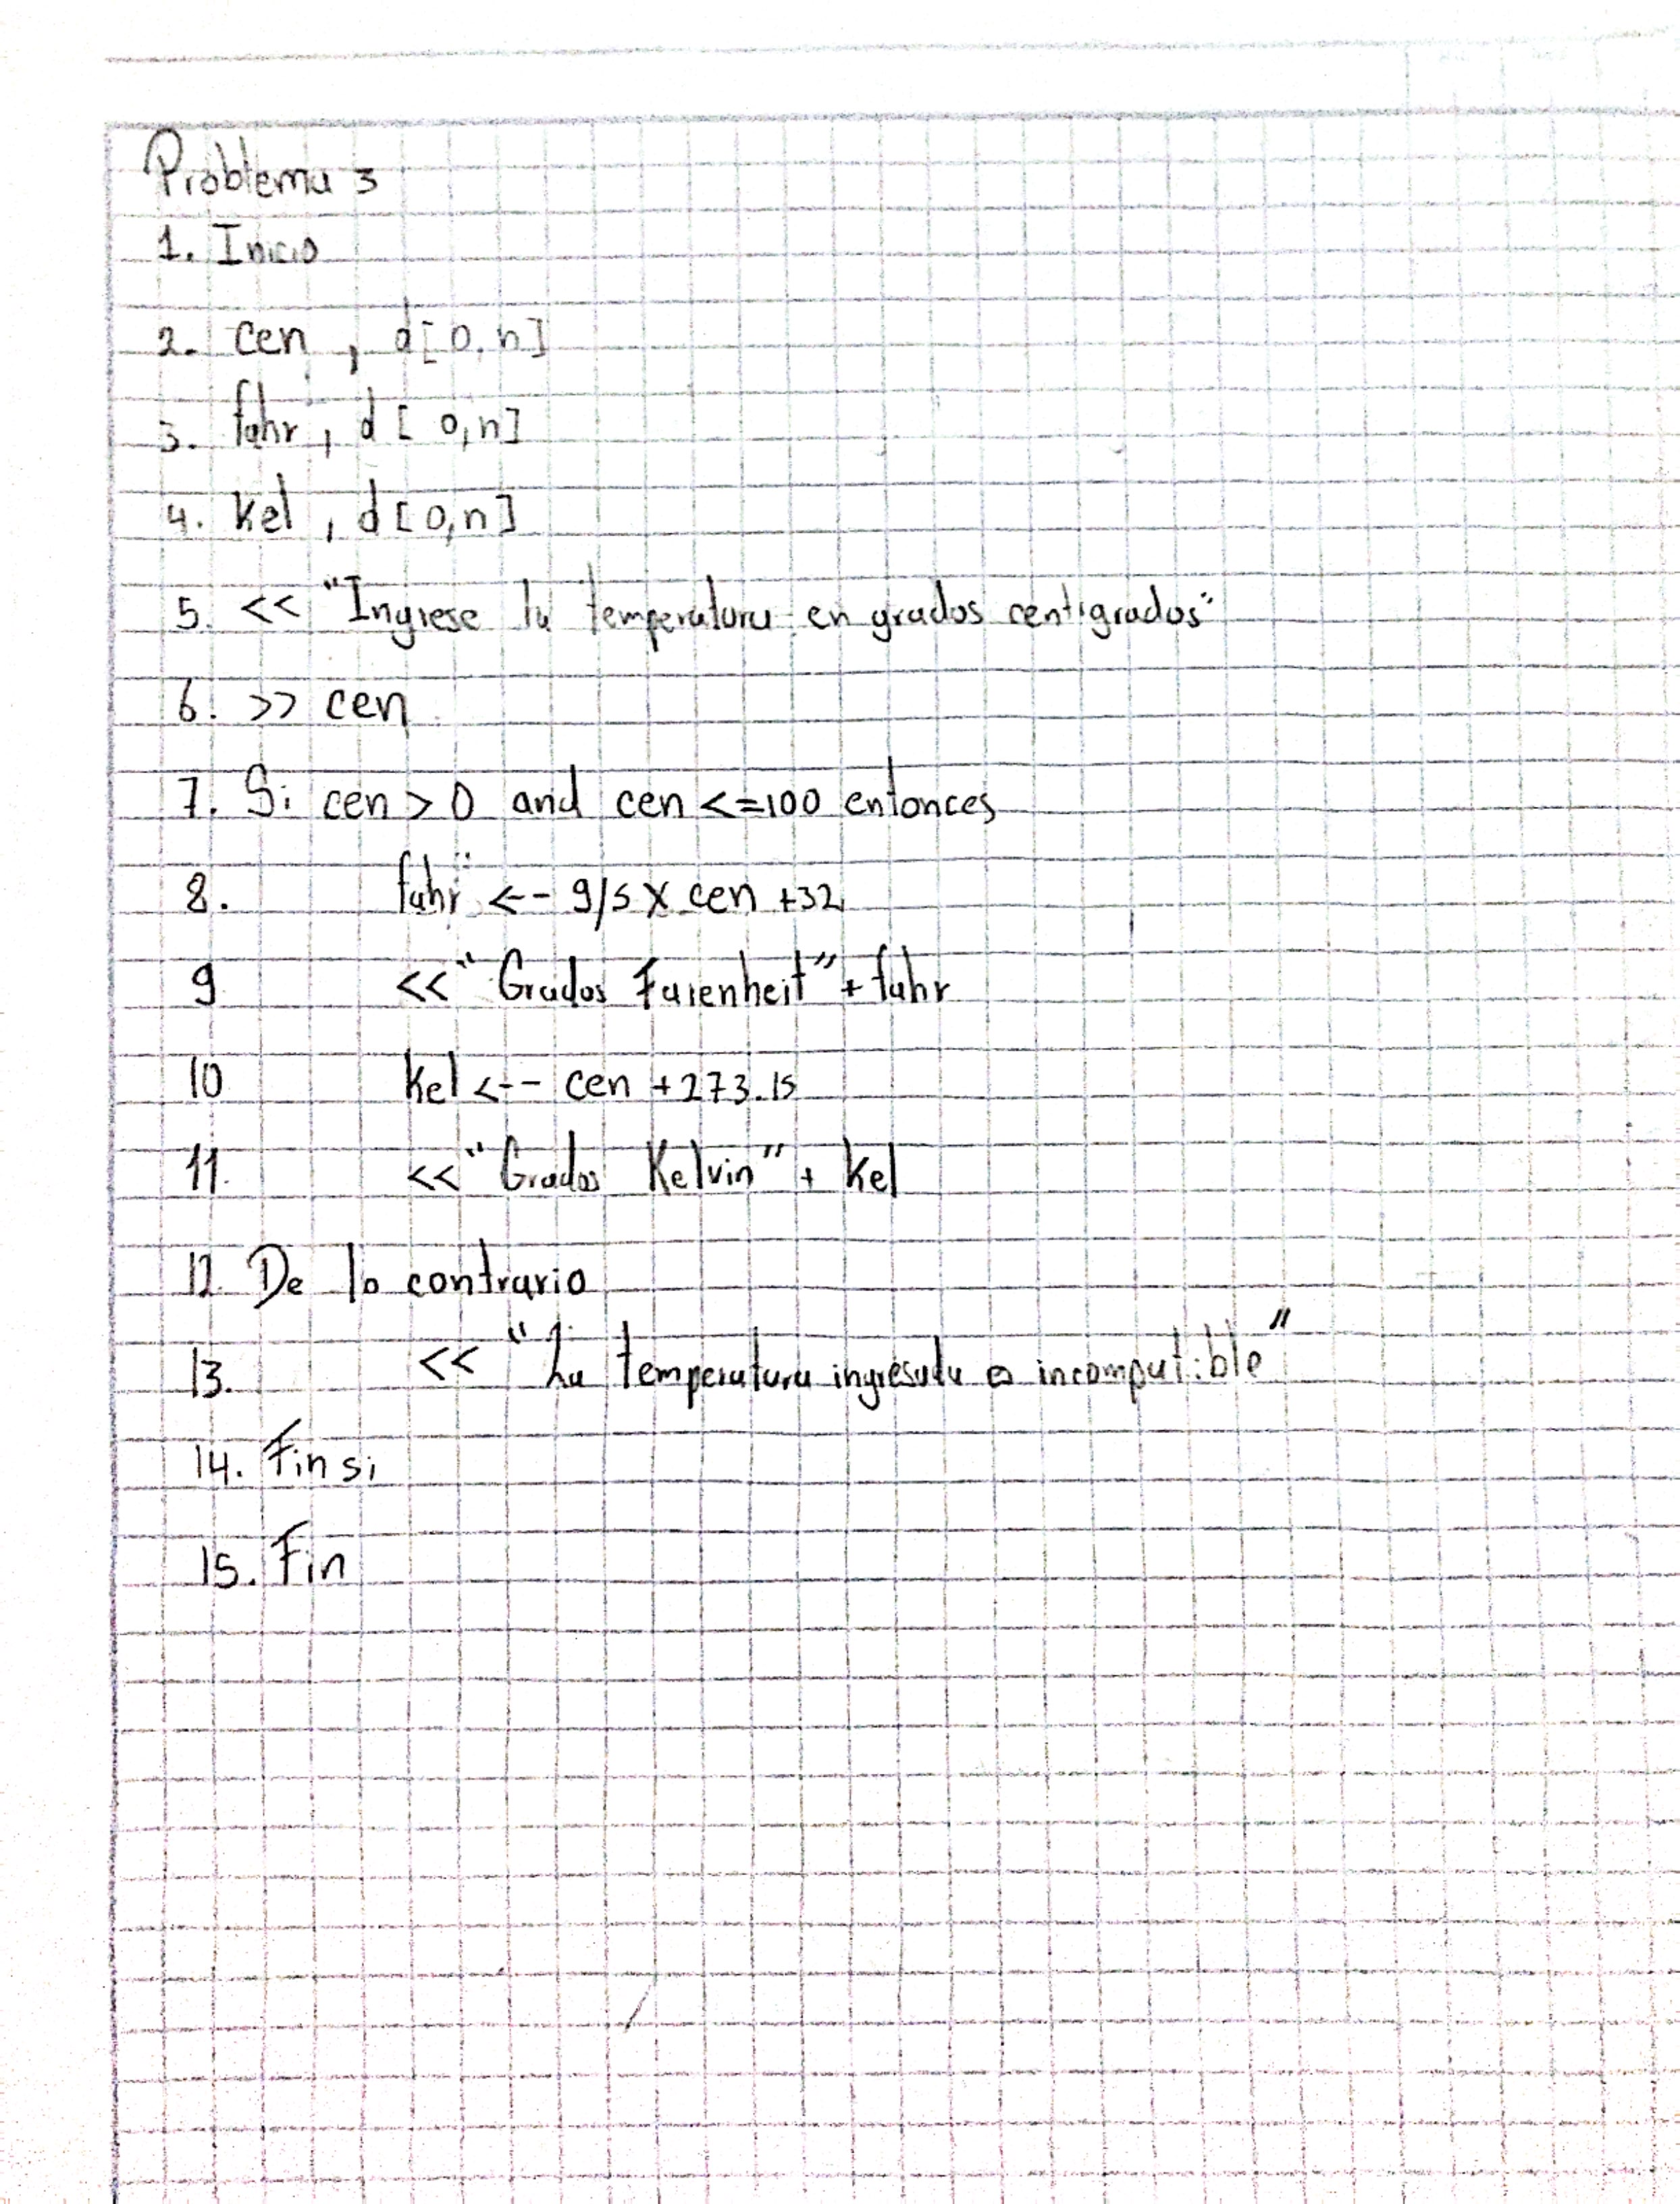 Problema 3
1. Inicio
2. cen , d[0,n]
3. fahr , d[0,n]
4. Kel , d[0,n]
5. << "Ingrese la temperatura en grados centigrados"
6. >> cen
7. Si cen > 0 and cen <=100 entonces
8. fahr <- 9/5 x cen +32
9 << "Grados Farenheit" + fahr
10 Kel <-- cen +273.15
11. << "Grados Kelvin" + Kel
12. De lo contrario
13. << "La temperatura ingresada es incompatible"
14. Fin si
15. Fin